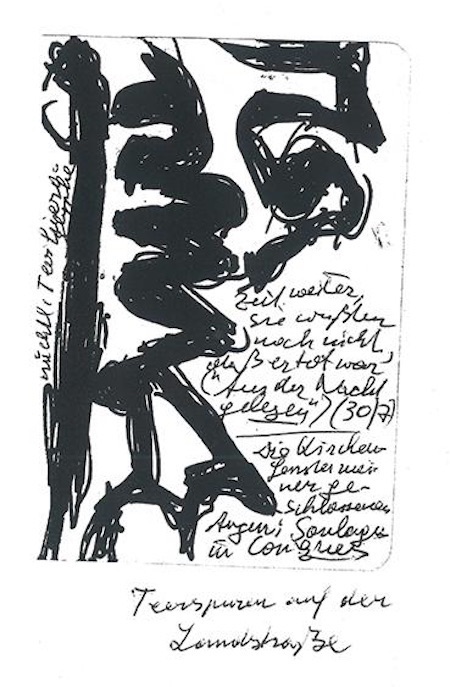 nächtl. Teer
zeit weiter,
sie wußten
noch nicht,
daß er tot war,
("Aus der Nacht
gelesen") (30/7)
Die Kirchen-
fenster mei-
ner ge-
schlossenen
Augen: Soulages
in Conques
Teerspuren auf der
Landstraße